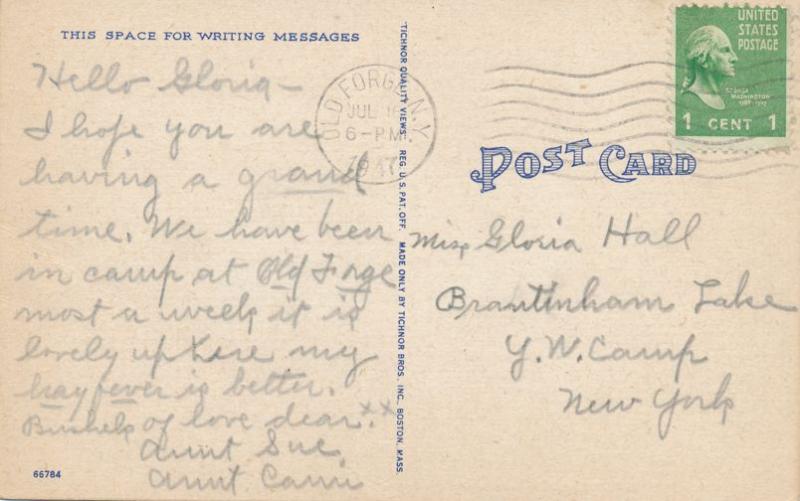 THIS SPACE FOR WRITING MESSAGES
Hello Gloria –
I hope you are
having a grand
time. We have been
in camp at Old Forge
most a week it is
lovely up here my
hayfever is better.
Bushels of love dear. xx
Aunt Sue
Aunt Carri
66784
"TICHNOR QUALITY VIEWS" REG. U. S. PAT. OFF. MADE ONLY BY TICHNOR BROS., INC., BOSTON, MASS.
OLD FORGE N.Y.
JUL
6-PM
1947
UNITED
STATES
POSTAGE
GEORGE
WASHINGTON
1 CENT 1
POST CARD
Miss Gloria Hall
Brantinham Lake
Y.W. Camp
New York